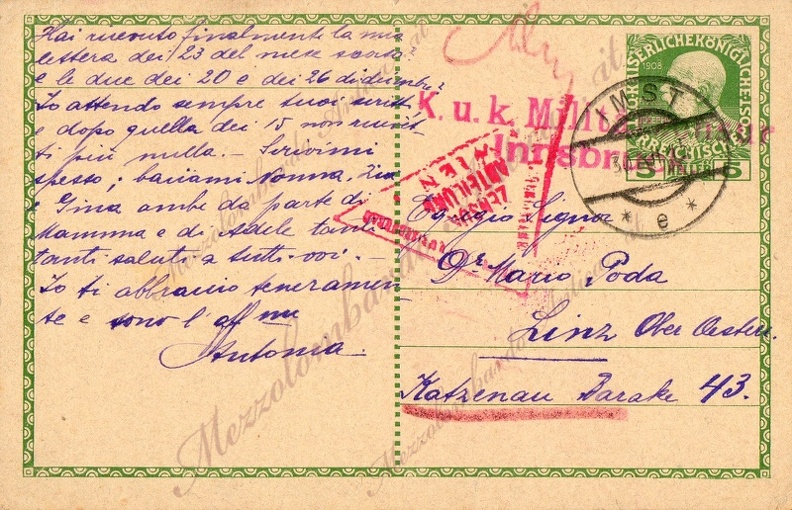 Hai ricevuto finalmente la mia
lettera dei 23 del mese scorso?
e le due dei 20 e dei 26 dicembre?
Io attendo sempre tuoi scritti
e dopo quella dei 15 non ricevetti
ti più nulla. — Scrivimi
spesso; baciami Nonna, Zia
e Gina ambe da parte di
Mamma e di Adele tanti
tanti saluti a tutti voi. —
Io ti abbraccio teneramen-
te e sono l'aff
Antonia.—
KAISERLICHE KÖNIGLICHE
1908
5 5
IMST
* e *
K. u. k. Militär
Innsbruck
ZENSUR
ABTEILUNG
WIEN
Egregio Signor
Dr Mario Poda
Linz Ober Oesterr.
Katzenau Barake 43.
Mezzolombardo
Mezzolombardo